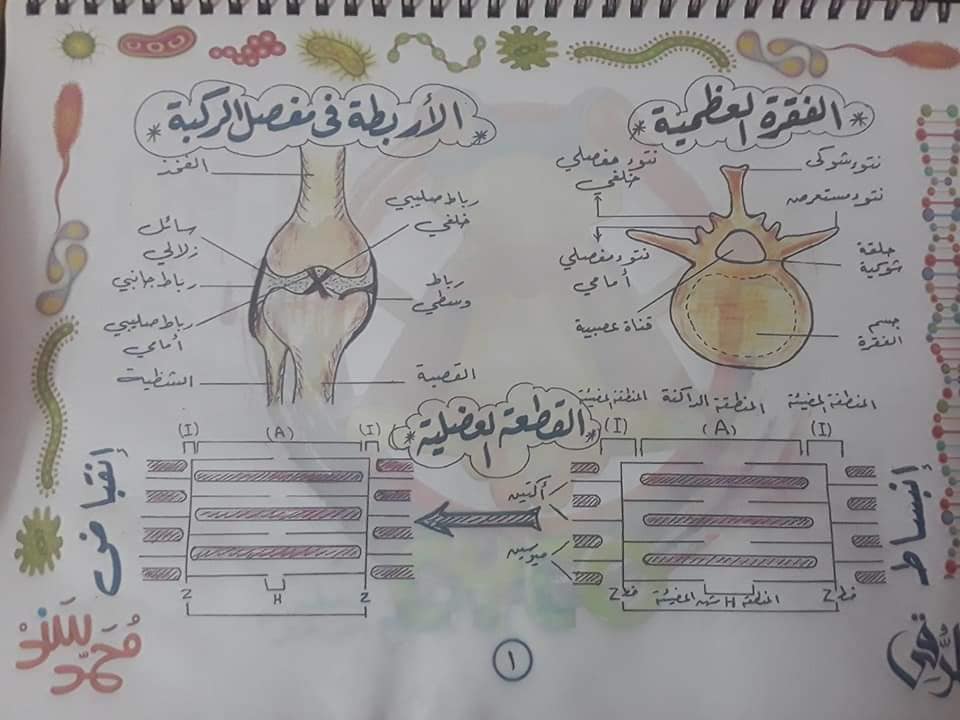 الفقرة العظمية
نتوء شوكي
نتوء مستعرض
نتوء مفصلي
خلفي
نتوء مفصلي
أمامي
حلقة
شوكية
قناة عصبية
جسم
الفقرة
الأربطة في مفصل الركبة
الفخذ
رباط صليبي
خلفي
سائل
زلالي
رباط جانبي
رباط
وسطي
رباط صليبي
أمامي
القصبة
الشظية
القطعة العضلية
المنطقة المضيئة
المنطقة الداكنة
المنطقة المضيئة
(I)
(A)
(I)
إنبساط
أكتين
ميوسين
خط Z
المنطقة H شبه المضيئة
خط Z
(I)
(A)
(I)
إنقباض
Z
H
Z
محمد سند
١